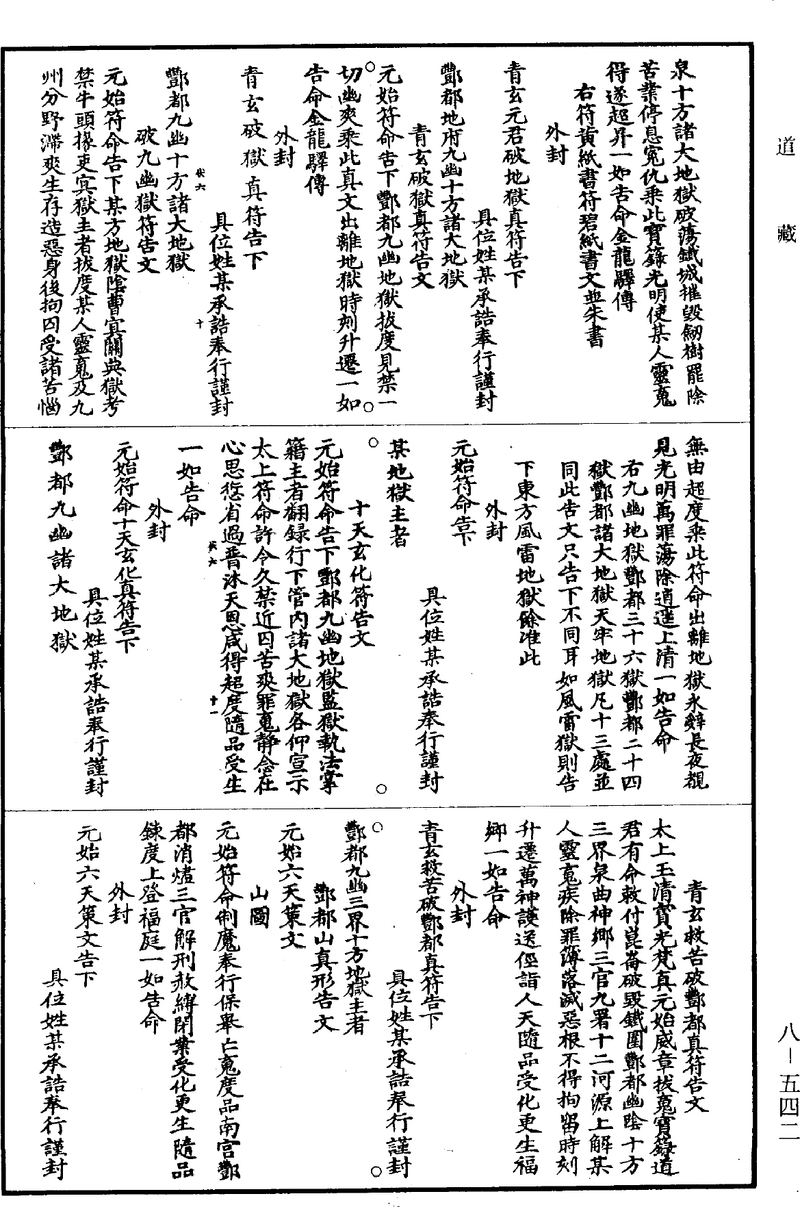 道藏
泉十方諸大地獄破蕩鐵城摧毀劒樹罷除
苦業停息寃仇乘此寶籙光明使某人靈䰟
得遂超昇一如告命金龍驛傳
右符黃紙書符碧紙書文並朱書
外封
青玄元君破地獄真符告下
具位姓某承誥奉行謹封
酆都地府九幽十方諸大地獄
青玄破獄真符告文
元始符命告下酆都九幽地獄拔度見禁一
切幽爽乘此真文出離地獄時刻升遷一如
告命金龍驛傳
外封
青玄破獄真符告下
具位姓某承誥奉行謹封
酆都九幽十方諸大地獄
破九幽獄符告文
元始符命告下某方地獄陰曹冥關典獄考
禁牛頭掾吏冥獄主者拔度某人靈䰟及九
州分野滯爽生存造惡身後拘囚受諸苦惱
無由超度乘此符命出離地獄永辭長夜覩
見光明萬罪蕩除逍遥上清一如告命
右九幽地獄酆都三十六獄酆都二十四
獄酆都諸大地獄天牢地獄凡十三處並
同此告文只告下不同耳如風雷獄則告
下東方風雷地獄餘准此
外封
元始符命告下
具位姓某承誥奉行謹封
某地獄主者
十天玄化符告文
元始符命告下酆都九幽地獄監獄執法掌
籍主者翻錄行下管内諸大地獄各仰宣示
太上符命許令久禁近囚苦爽罪䰟静念在
心思愆省過普沐天恩咸得超度隨品受生
一如告命
外封
元始符命十天玄化真符告下
具位姓某承誥奉行謹封
酆都九幽諸大地獄
青玄救苦破酆都真符告文
太上玉清寶光梵真元始威章拔䰟寶籙道
君有命敕付崑崙破毀鐵圍酆都幽陰十方
三界泉曲神鄉三官九署十二河源上解某
人靈䰟疾除罪簿落滅惡根不得拘留時刻
升遷萬神護送徑詣人天隨品受化更生福
鄉一如告命
外封
青玄救苦破酆都真符告下
具位姓某承誥奉行謹封
酆都九幽三界十方地獄主者
酆都山真形告文
元始六天策文
山圖
元始符命制魔奉行保舉亡䰟度品南宫酆
都消燼三官解刑赦緯閉業受化更生隨品
錬度上登福庭一如告命
外封
元始六天策文告下
具位姓某承誥奉行謹封
八—五四二